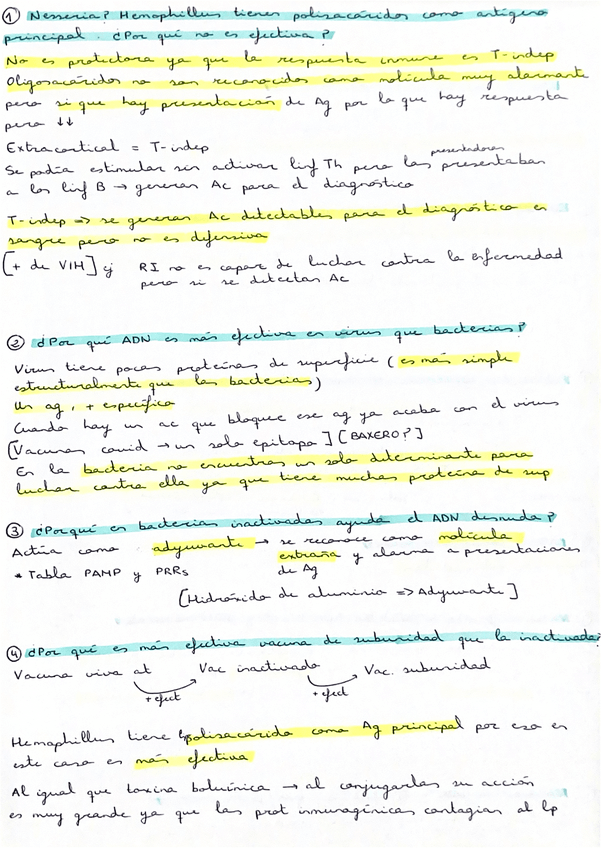 ① Nesseria? Hemophillus tienen polisacáridos como antígeno
principal. ¿Por qué no es efectiva?
No es protectora ya que la respuesta inmune es T-indep
Oligosacáridos no son reconocidos como molécula muy alarmante
pero si que hay presentación de Ag por lo que hay respuesta
pero ↓↓
Extracortical = T-indep
Se podía estimular sin activar linf Th pero las presentadoras presentaban
a los linf B → generan Ac para el diagnóstico
T-indep => se generan Ac detectables para el diagnóstico en
sangre pero no es defensiva
[+ de VIH] ej RI no es capaz de luchar contra la enfermedad
pero si se detectan Ac
② ¿Por qué ADN es más efectiva en virus que bacterias?
Virus tiene pocas proteínas de superficie (es más simple
estructuralmente que las bacterias)
Un ag, + específico
Cuando hay un ac que bloquee ese ag ya acaba con el virus
[Vacunas covid → un solo epítopo] [BAXERO?]
En la bacteria no encuentras un solo determinante para
luchar contra ella ya que tiene muchas proteína de sup
③ ¿Porqué en bacterias inactivadas ayuda el ADN desnudo?
Actúa como adyuvante → se reconoce como molécula
extraña y alarma a presentaciones
* Tabla PAMP y PRRs de Ag
[Hidróxido de aluminio => Adyuvante]
④ ¿Por qué es más efectiva vacuna de subunidad que la inactivada?
Vacuna viva at Vac inactivada Vac. subunidad
+ efect + efect
Hemophillus tiene polisacárido como Ag principal por eso en
este caso es más efectiva
Al igual que toxina botulínica → al conjugarlas su acción
es muy grande ya que las prot inmunogénicas contagian al lp